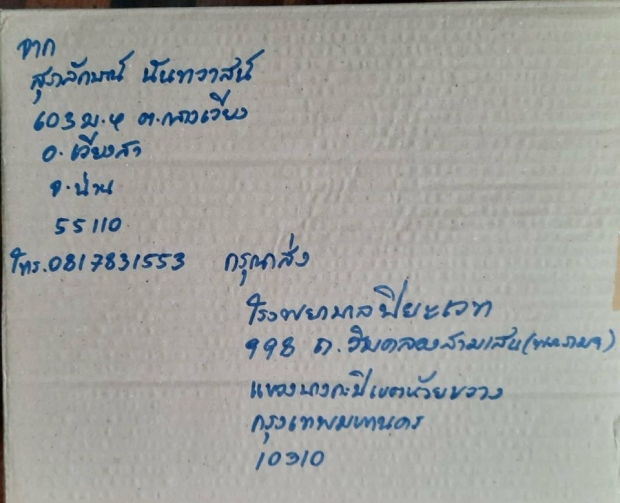 จาก
สุภาลักษณ์ นันทวาสน์
603 ม.4 ต.กลางเวียง
อ.เวียงสา
จ.น่าน
55110
โทร.0817831553 กรุณาส่ง
โรงพยาบาลปิยะเวท
998 ถ.ริมคลองสามเสน(พระราม9)
แขวงบางกะปิเขตห้วยขวาง
กรุงเทพมหานคร
10310